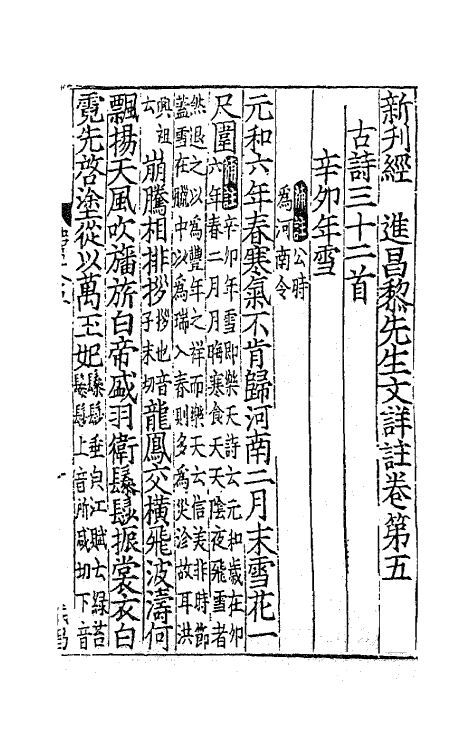 新刊經　進昌黎先生文詳註卷第五
古詩三十二首
辛夘年雪
補註公時爲河南令
元和六年春寒氣不肯歸河南二月末雪花一
尺圍補註辛夘年雪即樂天詩云元和歳在夘六年春二月月晦寒食天天陰夜飛雪者
然退之以爲豐年之祥而樂天云信美非時節蓋雪在臘中以爲瑞入春則多爲災沴故耳洪
興祖云崩騰相排拶拶也音子末切龍鳳交橫飛波濤何
飄揚天風吹旛旂白帝盛羽衛鬖髿振裳衣白
霓先啓塗從以萬玉妃鬖髿垂皃江賦云緑苔鬖髿上音所咸切下音